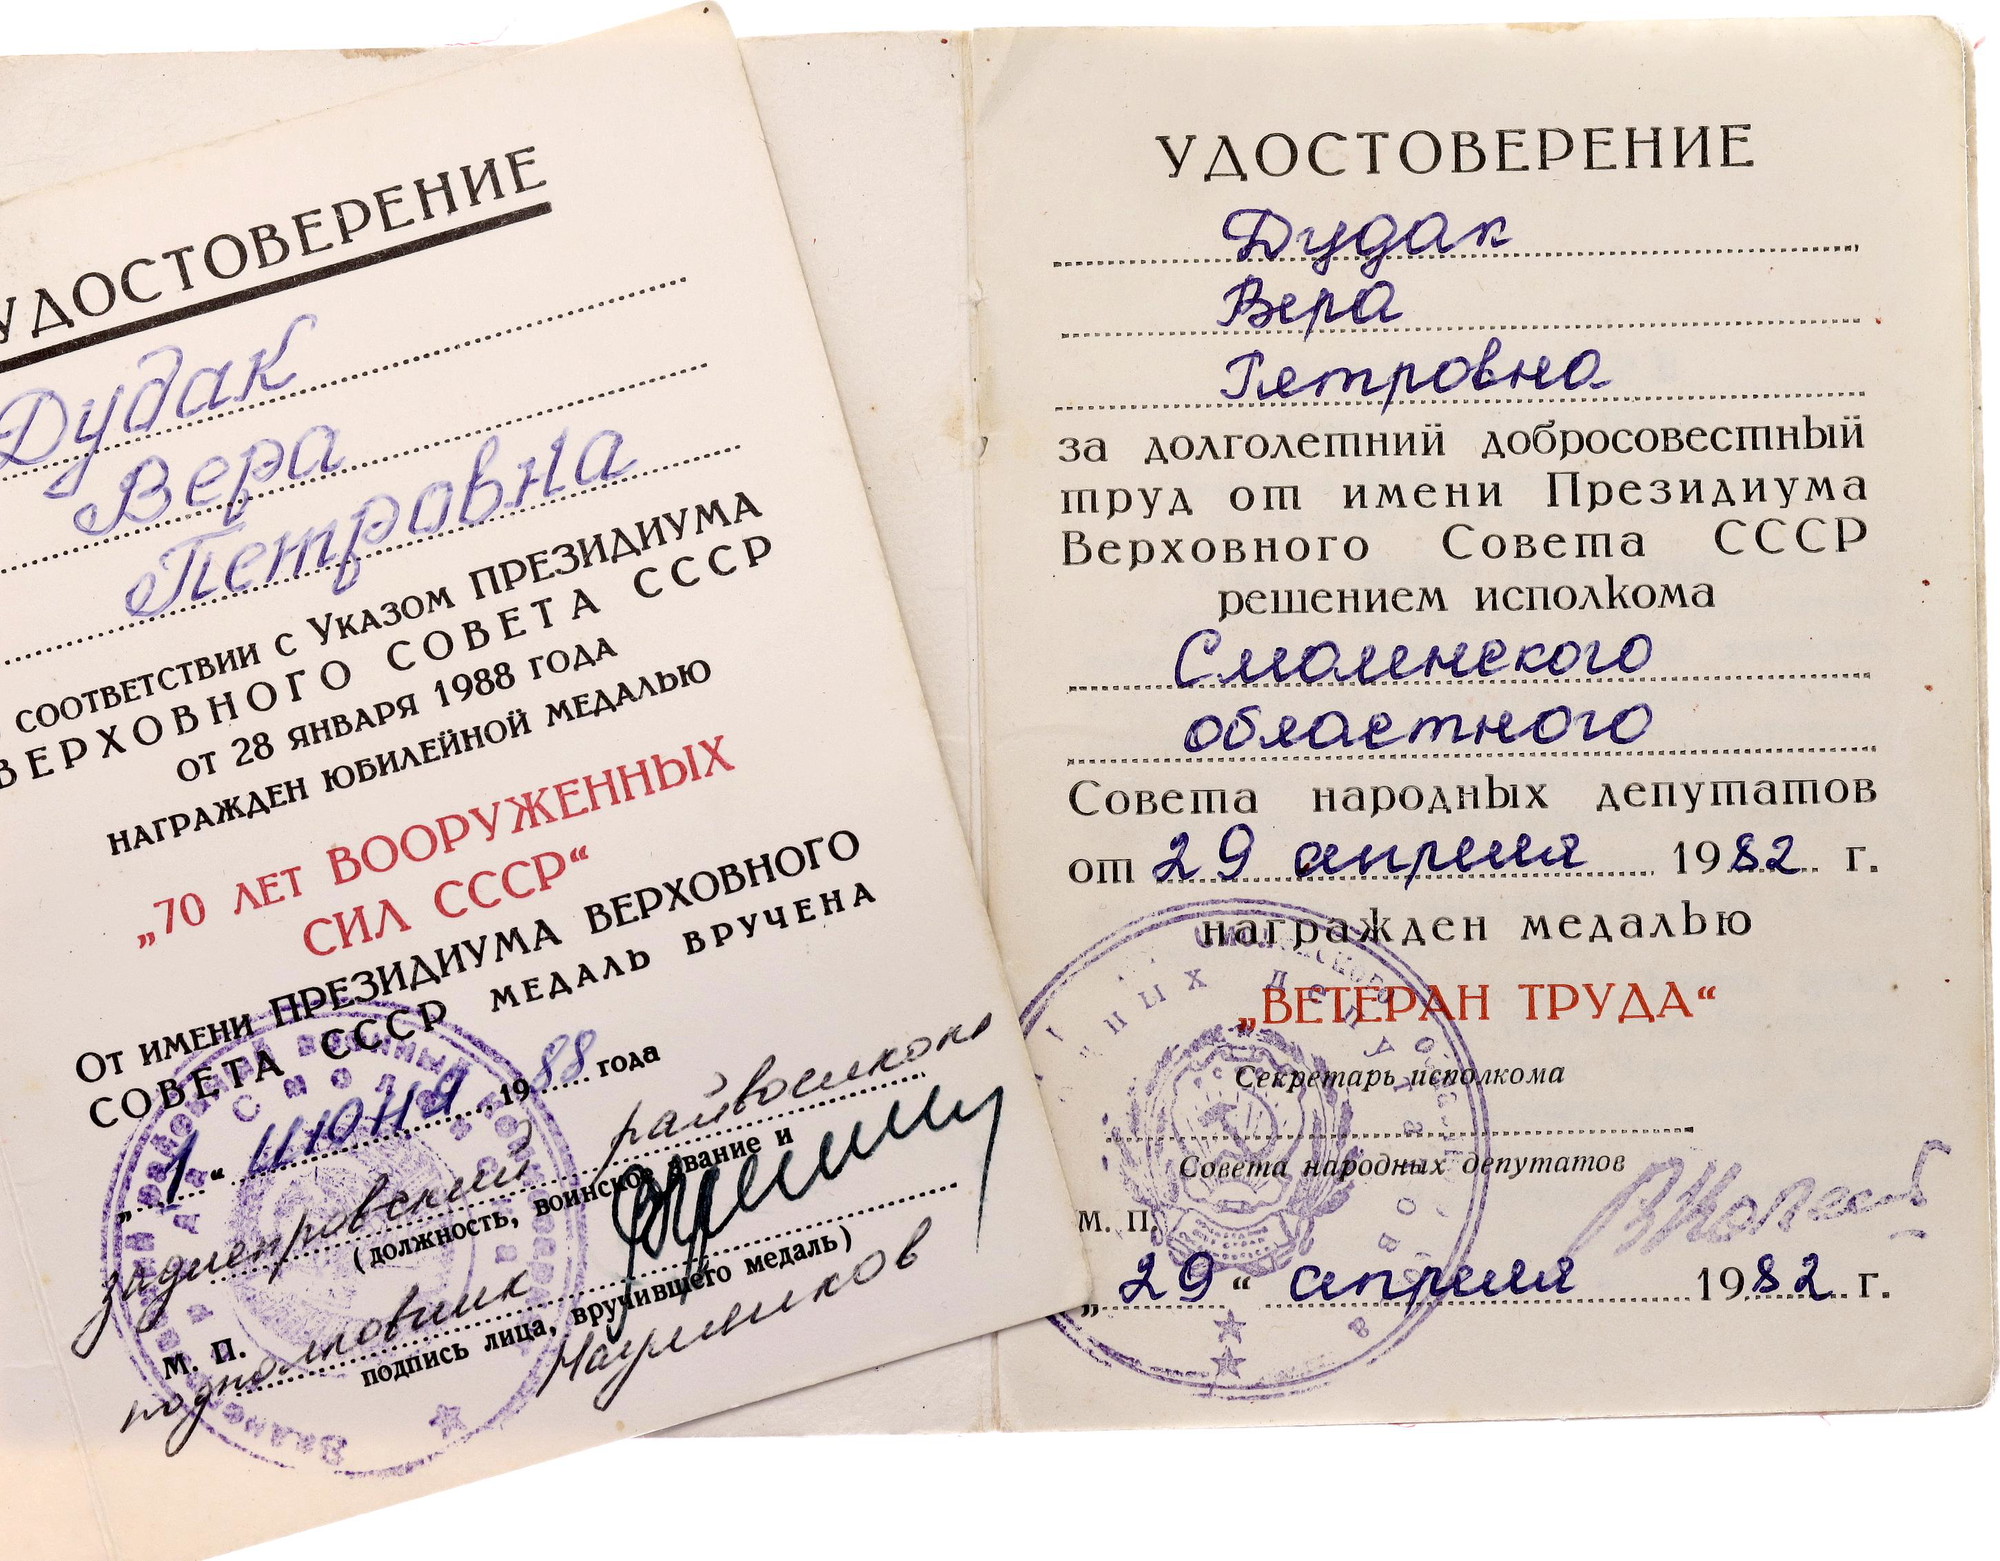 УДОСТОВЕРЕНИЕ
Дудак
Вера
Петровна
соответствии с Указом ПРЕЗИДИУМА
ВЕРХОВНОГО СОВЕТА СССР
от 28 января 1988 года
награжден юбилейной медалью
„70 ЛЕТ ВООРУЖЕННЫХ
СИЛ СССР“
От имени ПРЕЗИДИУМА ВЕРХОВНОГО
СОВЕТА СССР медаль вручена
„1“ июня 1988 года
Заднепровский райвоенком
(должность, воинское звание и
подполковник
М. П.
подпись лица, вручившего медаль)
УДОСТОВЕРЕНИЕ
Дудак
Вера
Петровна
за долголетний добросовестный
труд от имени Президиума
Верховного Совета СССР
решением исполкома
Смоленского
областного
Совета народных депутатов
от 29 апреля 1982 г.
награжден медалью
„ВЕТЕРАН ТРУДА“
Секретарь исполкома
Совета народных депутатов
М. П.
„29“ апреля 1982 г.